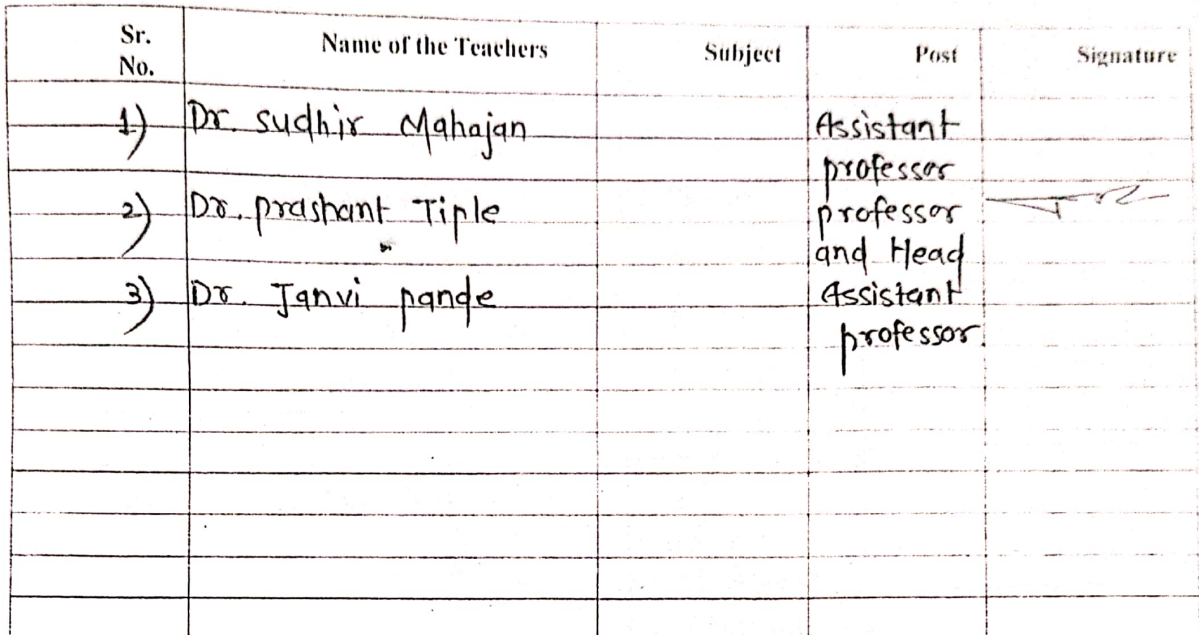 Sr. No. Name of the Teachers Subject Post Signature
1) Dr. sudhir Mahajan Assistant
professor
2) Dr. prashant Tiple professor
and Head
3) Dr. Janvi pande Assistant
professor.